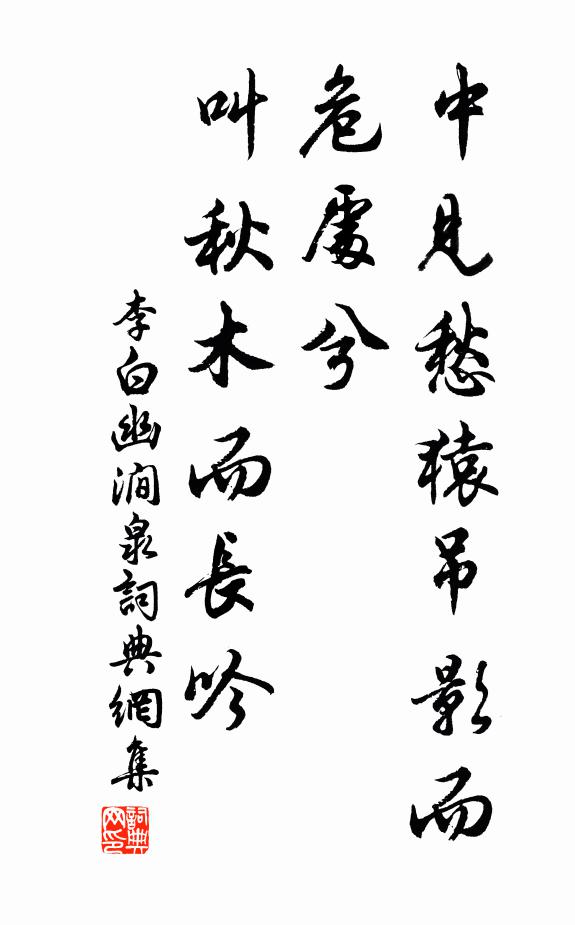 中見愁猿吊影而
危處兮
叫秋木而長吟
李白幽澗泉詞典網集
詞典
网印